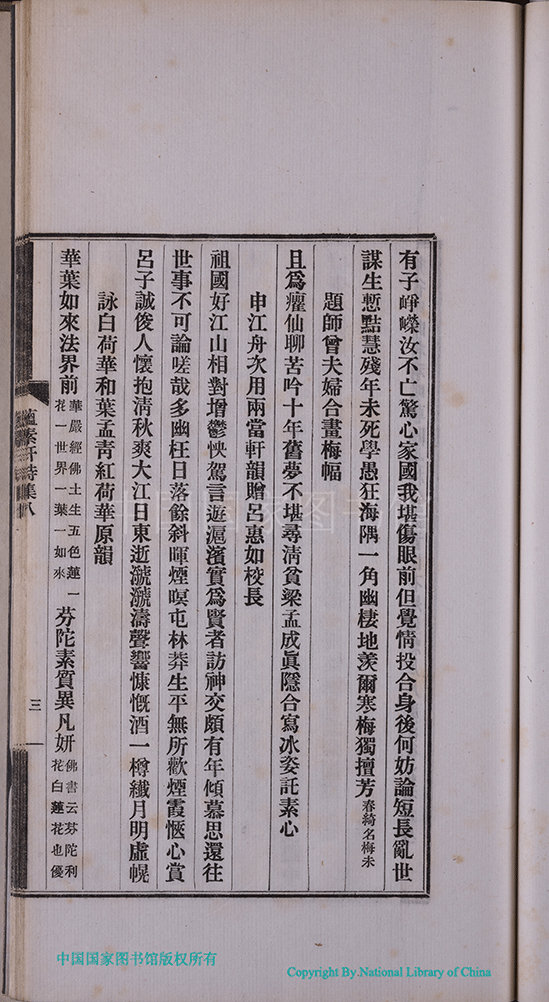 有子崢嶸汝不亡驚心家國我堪傷眼前但覺情投合身後何妨論短長亂世
謀生慙點慧殘年未死學愚狂海隅一角幽棲地羨爾寒梅獨擅芳春綺名梅未
題師曾夫婦合畫梅幅
且爲癯仙聊苦吟十年舊夢不堪尋清貧梁孟成眞隱合寫冰姿託素心
申江舟次用兩當軒韻贈呂惠如校長
祖國好江山相對增鬱怏駕言遊滬濱實爲賢者訪神交頗有年傾慕思還往
世事不可論嗟哉多幽枉日落餘斜暉煙暝屯林莽生平無所歡煙霞愜心賞
呂子誠俊人懷抱清秋爽大江日東逝虢虢濤聲響慷慨酒一樽纖月明虛幌
詠白荷華和葉孟青紅荷華原韻
華葉如來法界前華嚴經佛土生五色蓮一花一世界一葉一如來芬陀素質異凡妍佛書云芬陀利花白蓮花也優
蘊素軒詩集八
三
中国国家图书馆版权所有
Copyright By National Library of China